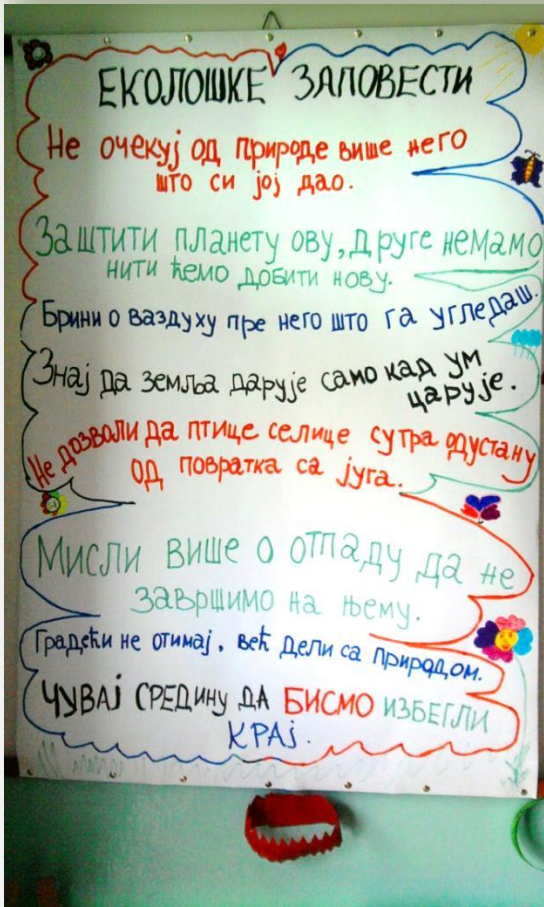 ЕКОЛОШКЕ ЗАПОВЕСТИ
Не очекуј од природе више него
што си јој дао.
Заштити планету ову, друге немамо
нити ћемо добити нову.
Брини о ваздуху пре него што га угледаш.
Знај да земља дарује само кад ум
царује.
Не дозволи да птице селице сутра одустану
од повратка са југа.
Мисли више о отпаду да не
завршимо на њему.
Градећи не отимај, већ дели са природом.
ЧУВАЈ СРЕДИНУ ДА БИСМО ИЗБЕГЛИ
КРАЈ.